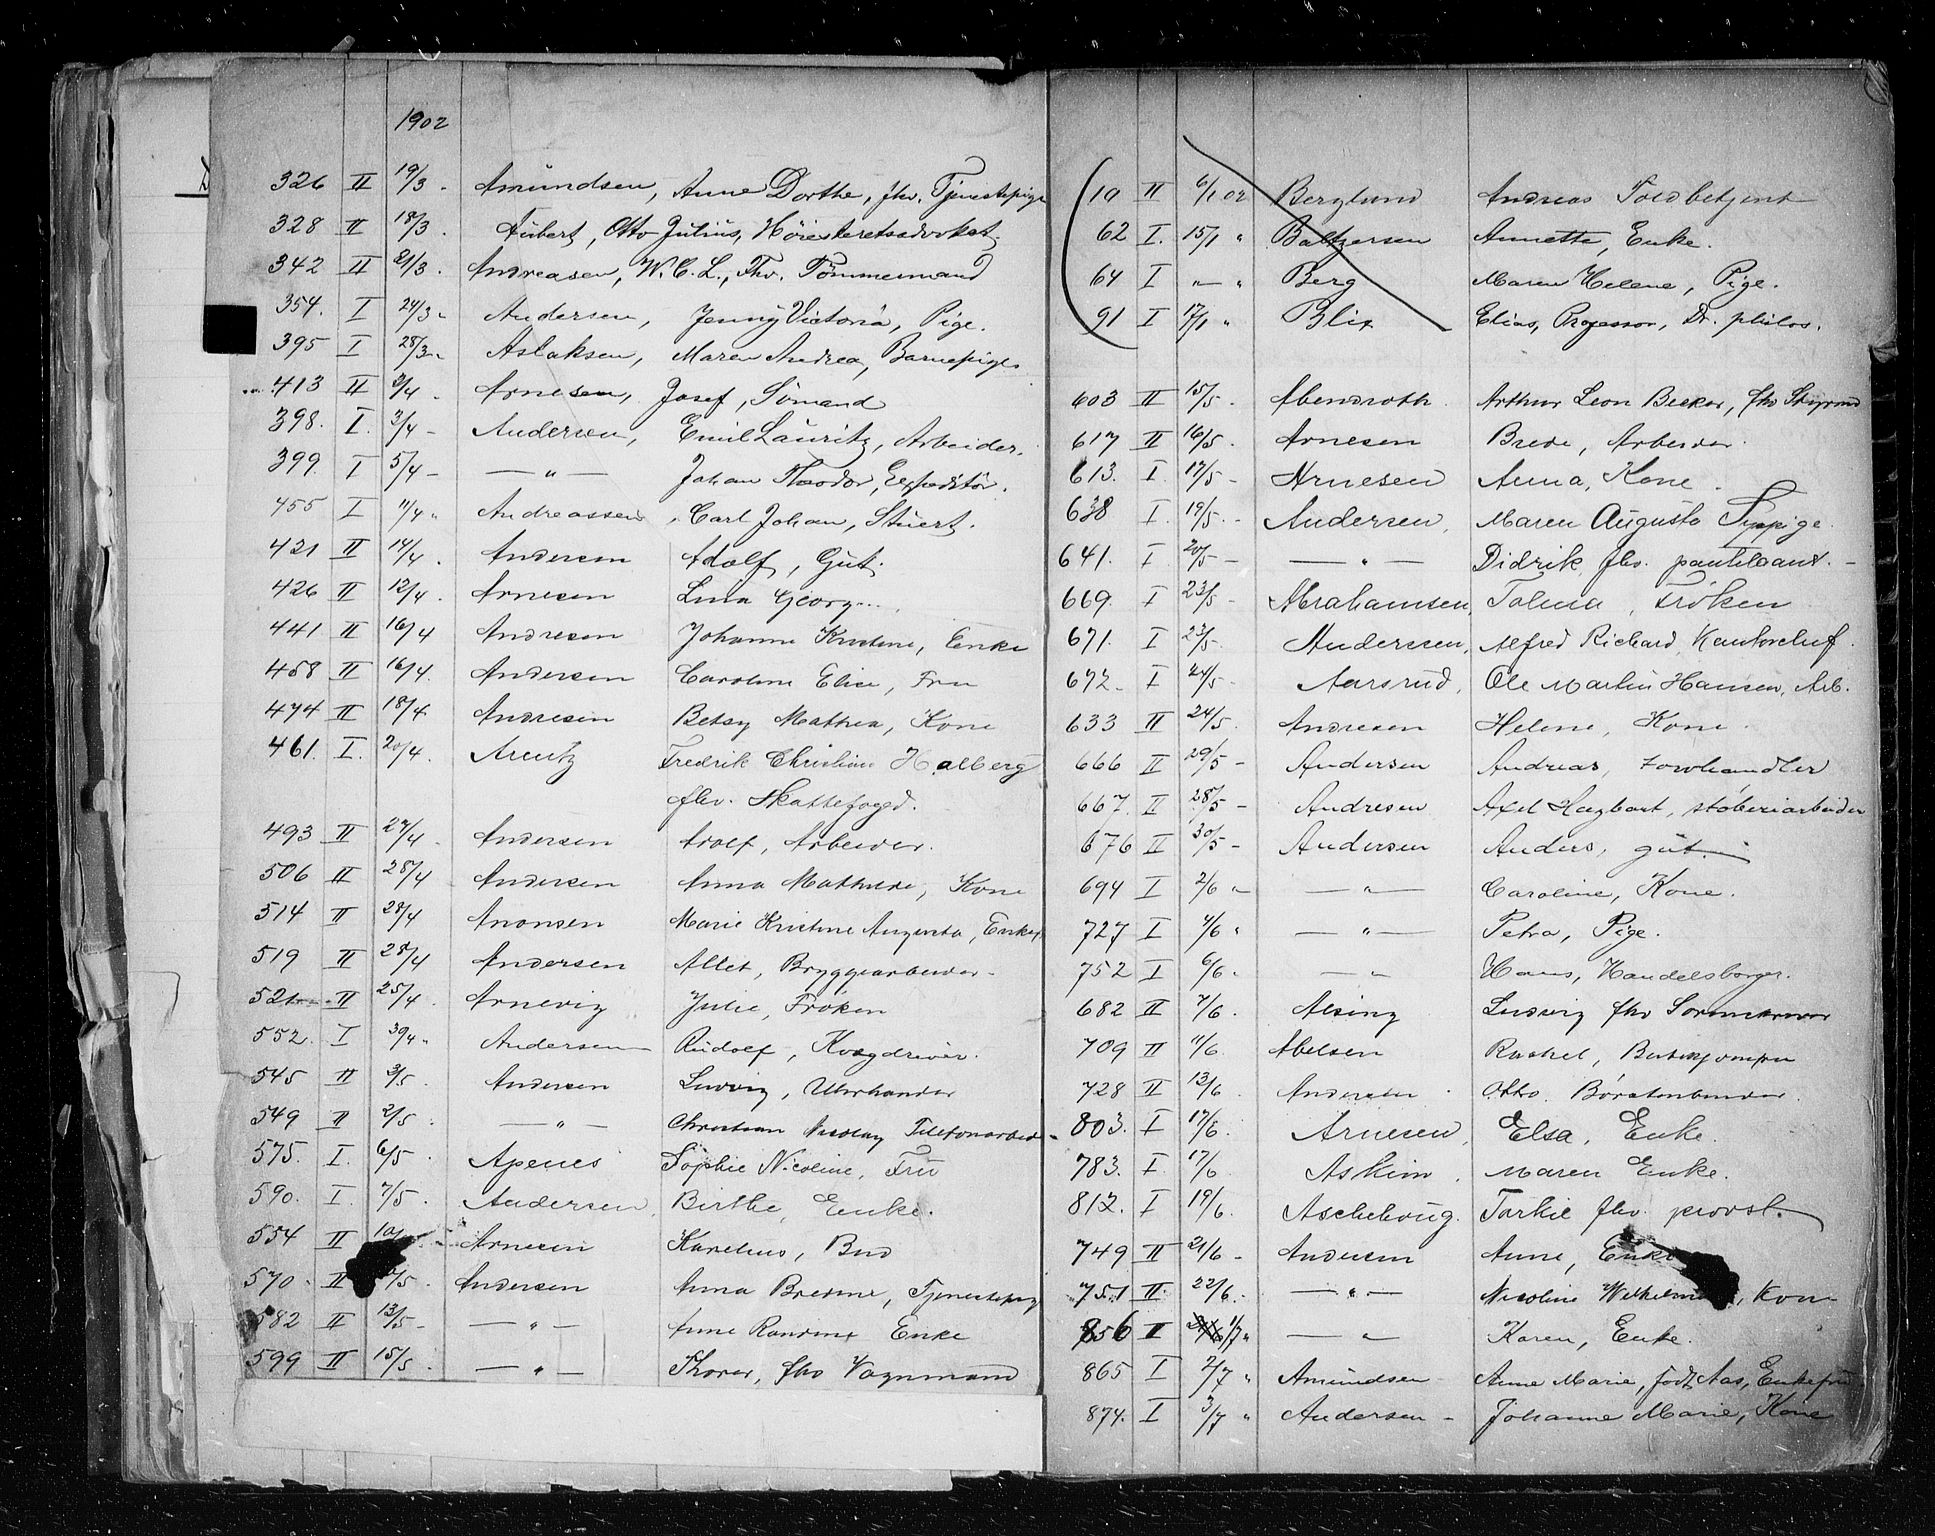 1902
326 II 19/3. Amundsen, Anne Dorthe, fhv. Tjenestepige
328 II 18/3. Aubert, Otto Julius, Høiesteretsadvokat.
342 II 21/3. Andreasen, W. C. L., Fhv. Tømmermand
354. I 24/3 " Andersen, Jenny Victoria, Pige.
395 I 28/3 " Aslaksen, Maren Andrea, Barnepige
413 II 2/4. Arnesen, Josef, Sømand
398. I. 3/4 - Andersen, Emil Lauritz, Arbeider.
399 I 5/4 - — " — Johan Theodor, Expeditør.
455 I 11/4 " Andreassen, Carl Johan, Stuert.
421 II 14/4. Andersen Adolf, Gut.
426 II 12/4. Arnesen Lina Georg....
441 II 16/4 Andresen Johanne Kristine, Enke
458 II 16/4. Andersen Caroline Elise, Fru
474 II 18/4 Andresen Betsy Mathea, Kone
461. I. 20/4. Arentz Fredrik Christian Halberg
fhv. Skattefoged.
493 II 27/4. Andersen Adolf, Arbeider.
506 II 28/4 Andersen Anna Mathilde, Kone
514 II 28/4 Aronsen Marie Kristine Augusta, Enke
519 II 28/4 Andersen Allet, Bryggearbeider.
521 II 25/4. Arnevig Julie, Frøken
552. I 30/4 " Andersen Rudolf, Kvægdriver.
545 II 3/5. Andersen Ludvig, Uhrhandler
549 II 2/5. — " — Christian Nicolay Telefonarbeid
575. I. 6/5. Apenes Sophie Nicoline, Fru
590. I. 7/5. Andersen, Birthe, Enke.
554 II 10/ Arnesen Karelius, Bud
570. II /5. Andersen Anna Bredine, Tjenestepig
582 II 13/5 - — " — Anne Randine Enke
599 II 15/5. — " — Thorer, fhv Vognmand
19 II 6/1 02 Berglund Andreas Toldbetjent
62 I. 15/1 " Baltzersen Annette, Enke.
64 I " — " Berg Maren Helene, Pige.
91 I 17/1 " Blix Elias, Professor, Dr. philos.
603 II 15/5. Abendroth Arthur Leon Becker, fhv Styrmd
617 II 16/5. Arnesen Brede, Arbeider.
613. I. 17/5 - Arnesen Anna, Kone.
638 I. 19/5. - Andersen, Maren Augusta Sypige.
641. I. 20/5 - — " — Didrik fhv. pantelaant. -
669. I 23/5 - Abrahamsen, Tolina, Frøken
671. I 23/5. Anderssen, Alfred Richard, Kontorchef.
672. I 24/5 - Aarsrud, Ole Martin Hansen, Arb.
633 II 24/5. Andresen Helene, Kone
666 II 29/5 - Andersen Andreas,
667. II 28/5 - Andresen Axel Hagbart, støberiarbeider
676 II 30/5 - Andersen Anders, gut.
694 I 2/6 " — " — Caroline, Kone.
727 I 4/6 " — " — Petra, Pige.
752 I 6/6 " — " Hans, Handelsborger.
682 II 7/6. Alsing Ludvig fhv
709 II 11/6. Abelsen Rachel,
728 II 13/6. Andersen. Otto. Børstenbinder.
803. I 17/6. Arnesen, Elsa, Enke.
783. I. 17/6 Askim. Maren Enke.
812. I 19/6. Aschehoug. Torkil fhv. provst.
749 II 21/6 - Andersen Anne, Enke
751 II. 22/6. — " — Nicoline Wilhelmine, Kone
856 II 1/7 " — " Karen, Enke.
865 I 2/7 " Amundsen Anne Marie, født Aas, Enkefru
874. I 3/7 " Andersen - Johanne Marie, Kone